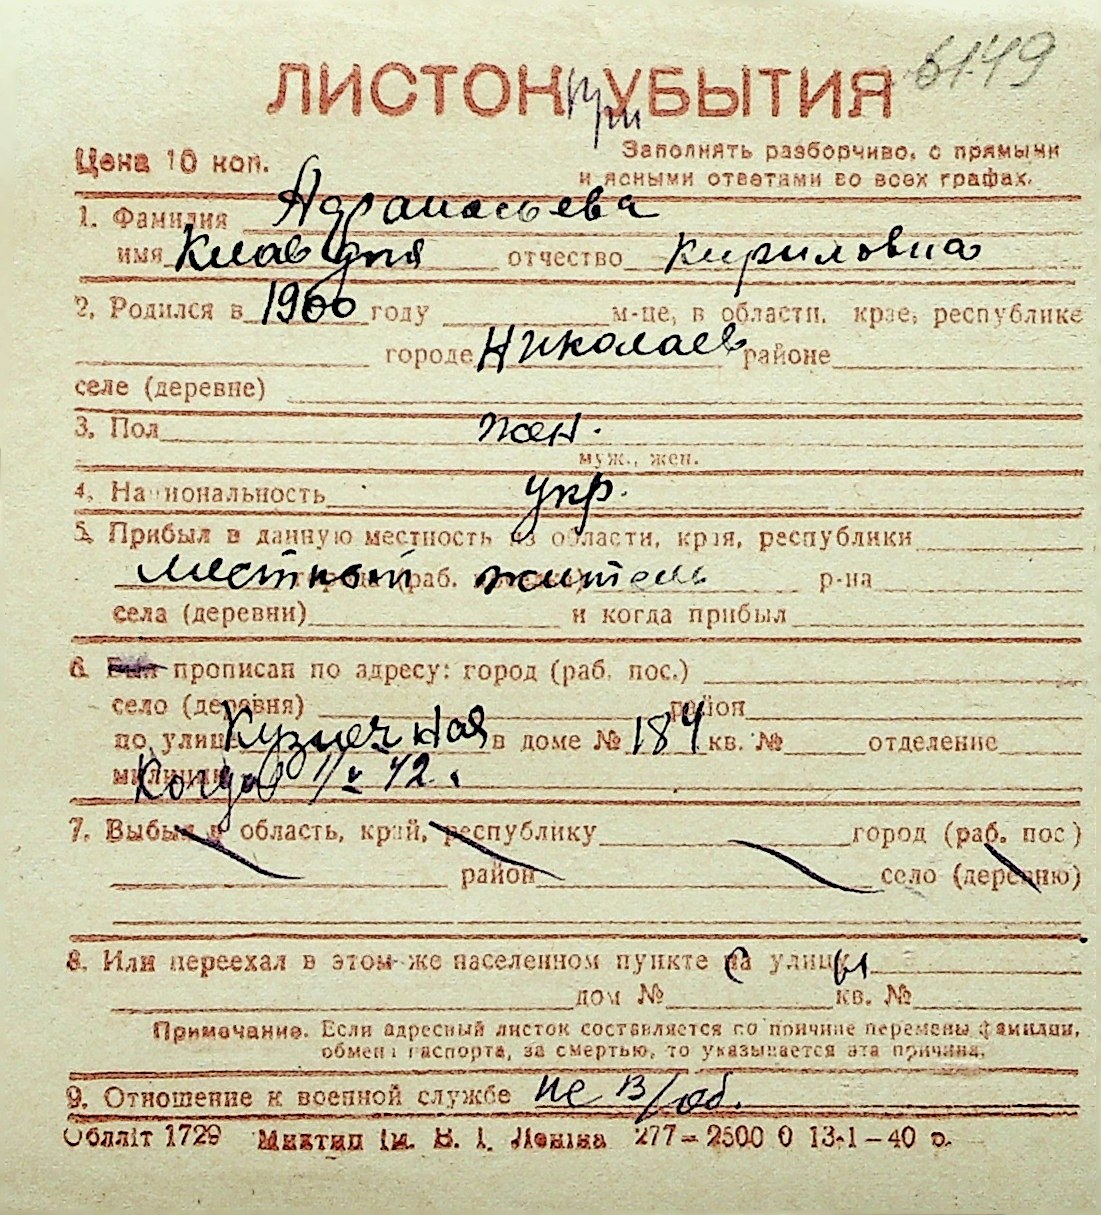 6149
ЛИСТОК при УБЫТИЯ
Цена 10 коп.
Заполнять разборчиво, с прямыми
и ясными ответами во всех графах.
1. Фамилия Афанасьева
имя Клавдия отчество Кириловна
2. Родился в 1900 году м-це, в области, крае, республике
городе Николаев районе
селе (деревне)
3. Пол жен.
муж., жен.
4. Национальность укр.
5. Прибыл в данную местность из области, края, республики
местный житель города (раб. поселка) р-на
села (деревни) и когда прибыл
6. Был прописан по адресу: город (раб. пос.)
село (деревня) район
по улице Кузнечная в доме № 184 кв. № отделение
милиции Когда 1/V 42.
7. Выбыл в область, край, республику город (раб. пос)
район село (деревню)
8. Или переехал в этом же населенном пункте с улицы
дом № кв. №
Примечание. Если адресный листок составляется по причине перемены фамилии,
обмена паспорта, за смертью, то указывается эта причина.
9. Отношение к военной службе не в/об.
Облліт 1729 Миктип ім. В. І. Леніна 277–2500 0 13-1–40 р.